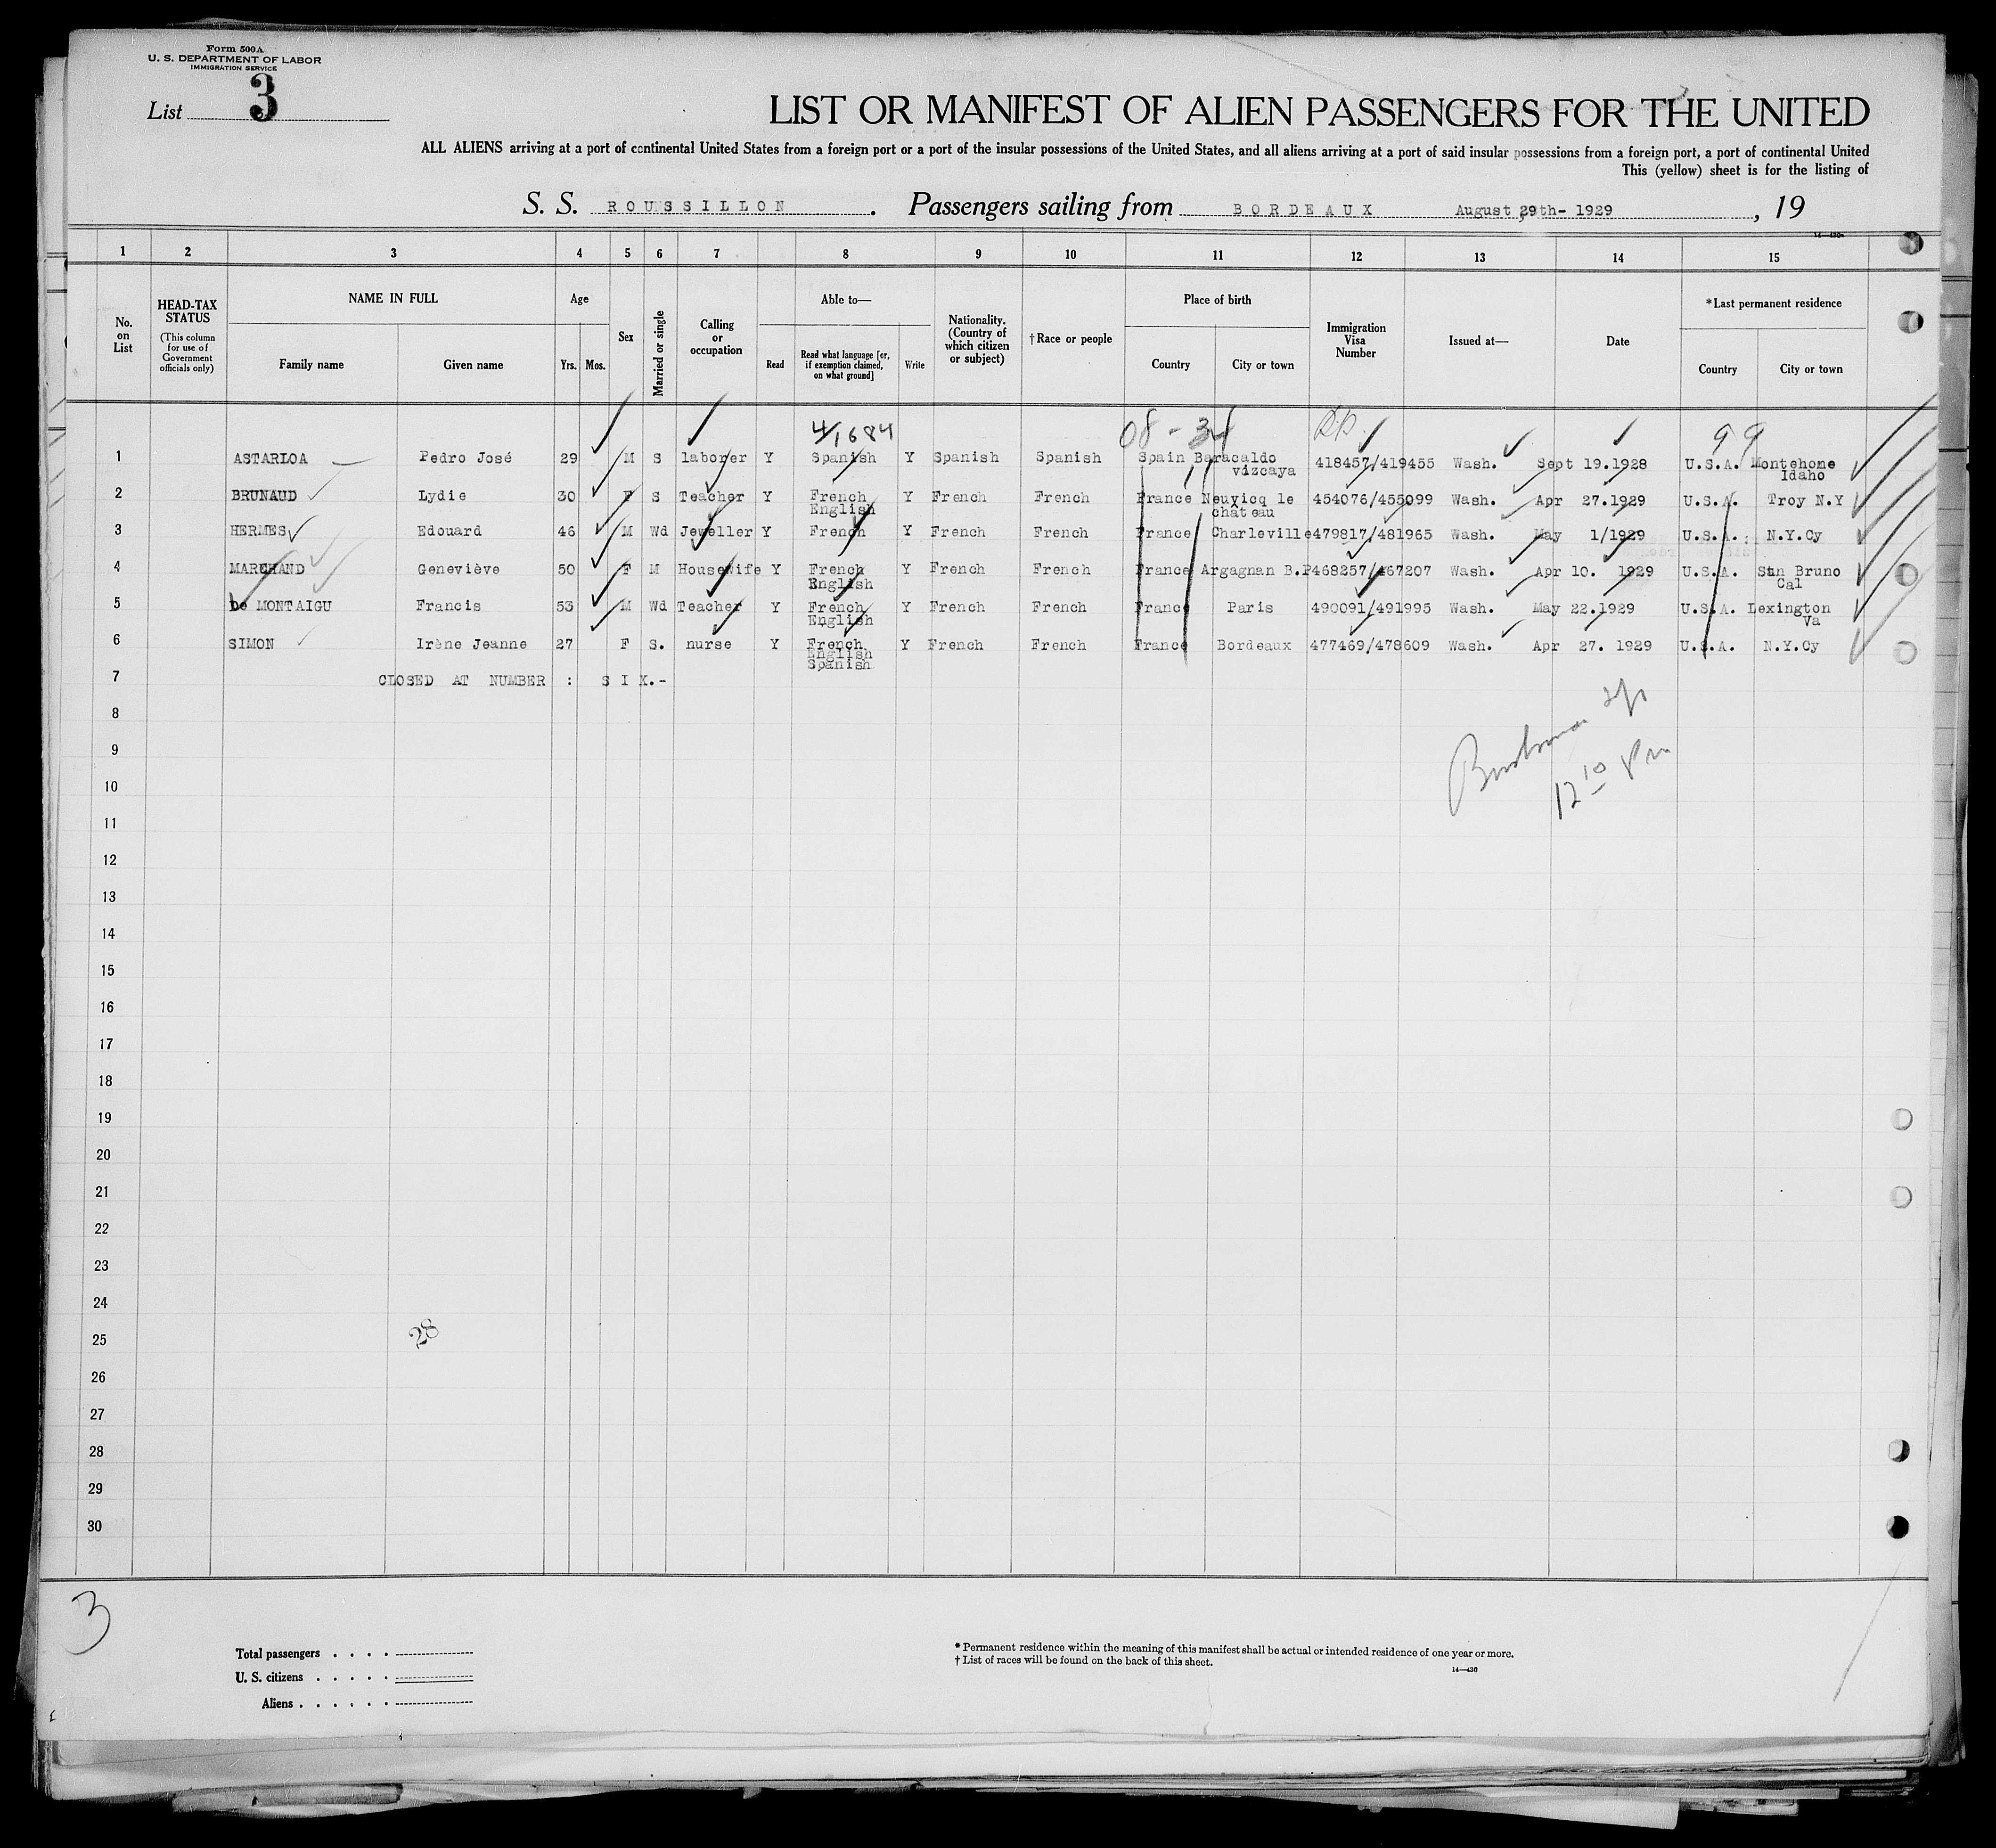 Form 500A
U. S. DEPARTMENT OF LABOR
IMMIGRATION SERVICE
List 3
LIST OR MANIFEST OF ALIEN PASSENGERS FOR THE UNITED
ALL ALIENS arriving at a port of continental United States from a foreign port or a port of the insular possessions of the United States, and all aliens arriving at a port of said insular possessions from a foreign port, a port of continental United
This (yellow) sheet is for the listing of
S. S. ROUSSILLON . Passengers sailing from BORDEAUX August 29th- 1929 , 19
1 2 3 4 5 6 7 8 9 10 11 12 13 14 15
No. on List
HEAD-TAX STATUS
(This column for use of Government officials only)
NAME IN FULL
Family name Given name
Age
Yrs. Mos.
Sex
Married or single
Calling or occupation
Able to—
Read Read what language [or, if exemption claimed, on what ground] Write
Nationality. (Country of which citizen or subject)
†Race or people
Place of birth
Country City or town
Immigration Visa Number
Issued at—
Date
*Last permanent residence
Country City or town
4/1684 08-34 99
1 ASTARLOA Pedro José 29 M S laborer Y Spanish Y Spanish Spanish Spain Baracaldo 418457/419455 Wash. Sept 19.1928 U.S.A. Montehone
vizcaya Idaho
2 BRUNAUD Lydie 30 F S Teacher Y French Y French French France Neuvicq le 454076/455099 Wash. Apr 27.1929 U.S.A. Troy N.Y
English château
3 HERMES Edouard 46 M Wd Jeweller Y French Y French French France Charleville 479817/481965 Wash. May 1/1929 U.S.A. N.Y.Cy
4 MARCHAND Geneviève 50 F M Housewife Y French Y French French France Argagnan B.P 468257/467207 Wash. Apr 10. 1929 U.S.A. San Bruno
English Cal
5 De MONTAIGU Francis 53 M Wd Teacher Y French Y French French France Paris 490091/491995 Wash. May 22.1929 U.S.A. Lexington
English Va
6 SIMON Irène Jeanne 27 F S. nurse Y French Y French French France Bordeaux 477469/478609 Wash. Apr 27. 1929 U.S.A. N.Y.Cy
English
Spanish
7 CLOSED AT NUMBER : SIX.-
8
9
12 10 Pm
10
11
12
13
14
15
16
17
18
19
20
21
22
23
24
25 28
26
27
28
29
30
3
Total passengers . . . .
U. S. citizens . . . . .
Aliens . . . . . .
* Permanent residence within the meaning of this manifest shall be actual or intended residence of one year or more.
† List of races will be found on the back of this sheet.
14—430